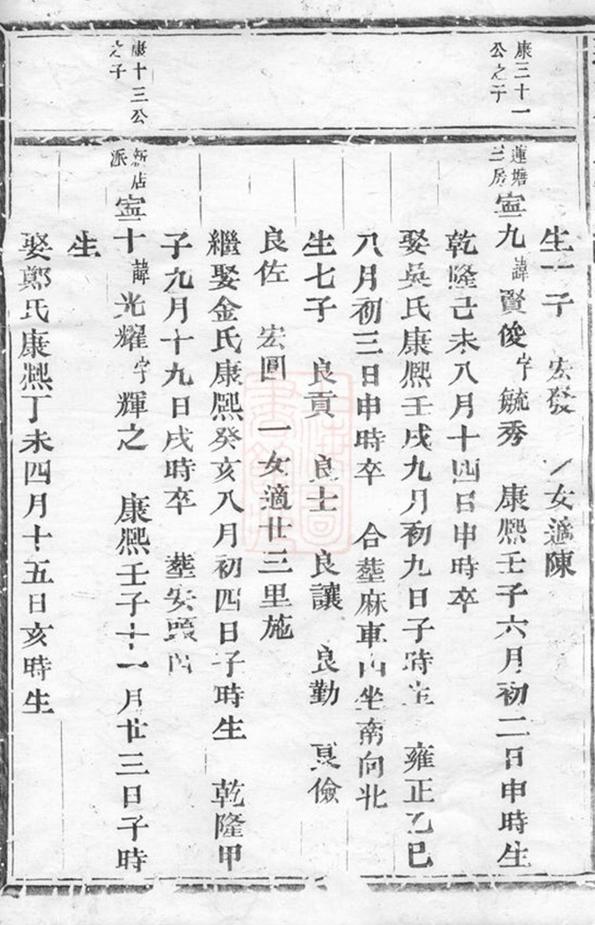 康三十一
公之子
蓮塘
三房
生一子 宏發 一女適陳
寍九諱賢俊字毓秀 康熙壬子六月初二日申時生
乾隆己未八月十四日申時卒
娶吳氏康熙壬戌九月初九日子時生 雍正乙巳
八月初三日申時卒 合塟麻車山坐南向北
生七子 良貢 良士 良讓 良勤 良儉
良佐 宏圓 一女適廿三里施
繼娶金氏康熙癸亥八月初四日子時生 乾隆甲
子九月十九日戌時卒 塟安頭
康十三公
之子
新店
派
寍十諱光耀字輝之 康熙壬子十一月廿三日子時
生
娶鄭氏康熙丁未四月十五日亥時生